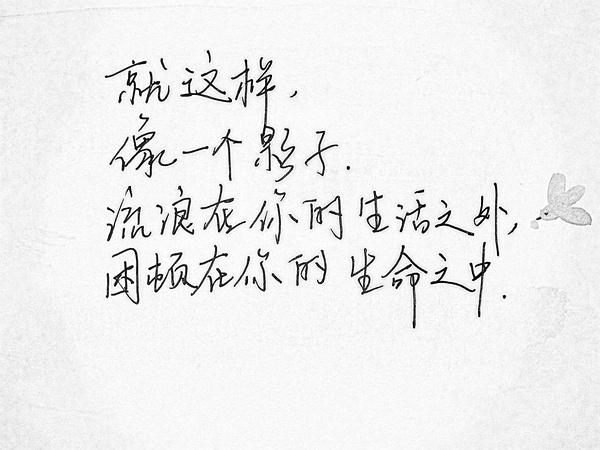 就这样，
像一个影子.
流浪在你的生活之外，
困顿在你的生命之中.